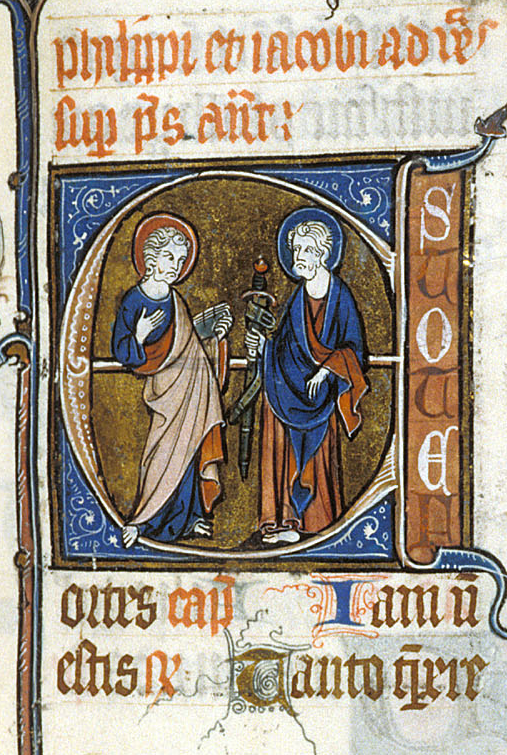 phılıppı et ıacobı ad ūēs
suꝑ p̄s. an̄t:
E
S
T
O
T
E
F
ortes cap̄ Iam ū
estis ℟ Tanto